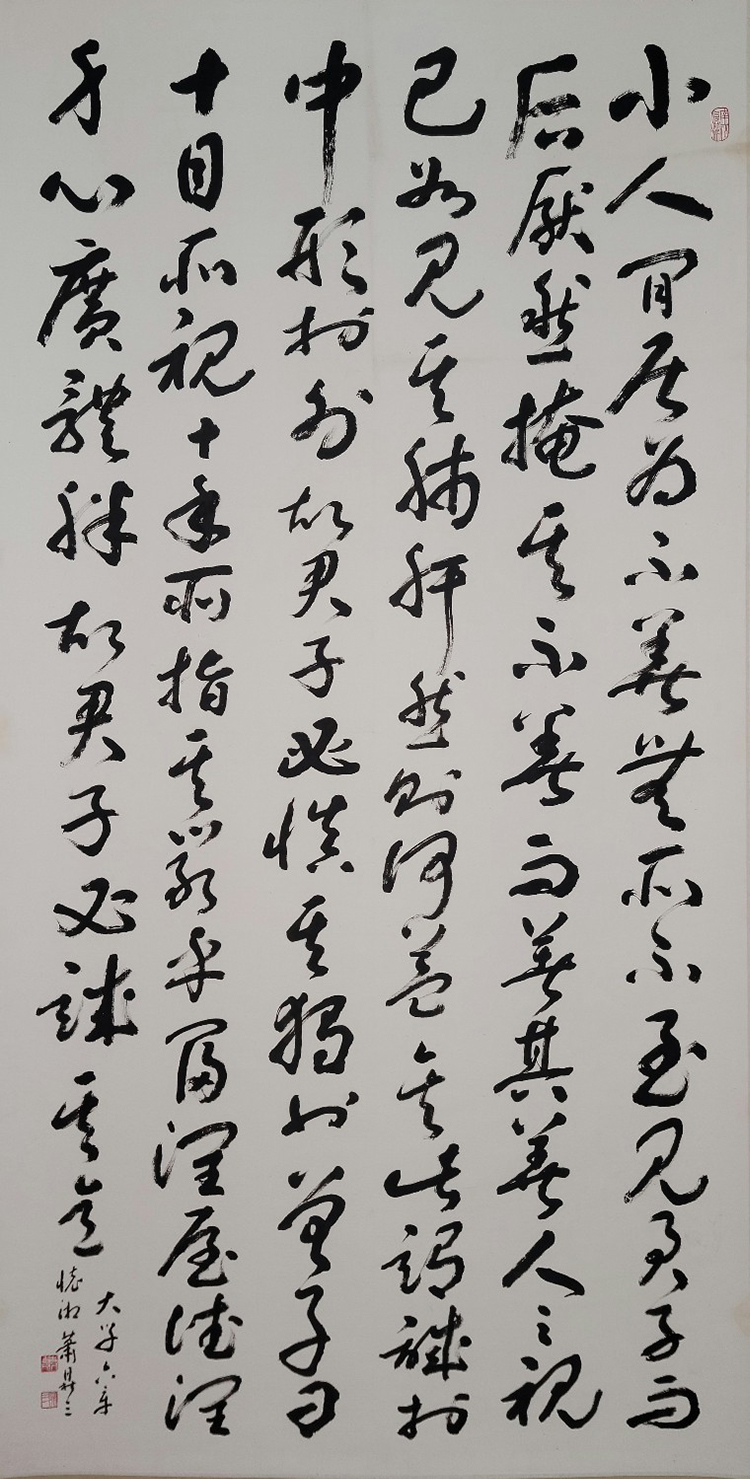 小人閒居為不善無所不至見君子而
后厭然掩其不善而著其善人之視
己如見其肺肝然則何益矣此謂誠於
中形於外故君子必慎其獨也曾子曰
十目所視十手所指其嚴乎富潤屋德潤
身心廣體胖故君子必誠其意
大学六章
湘蕭